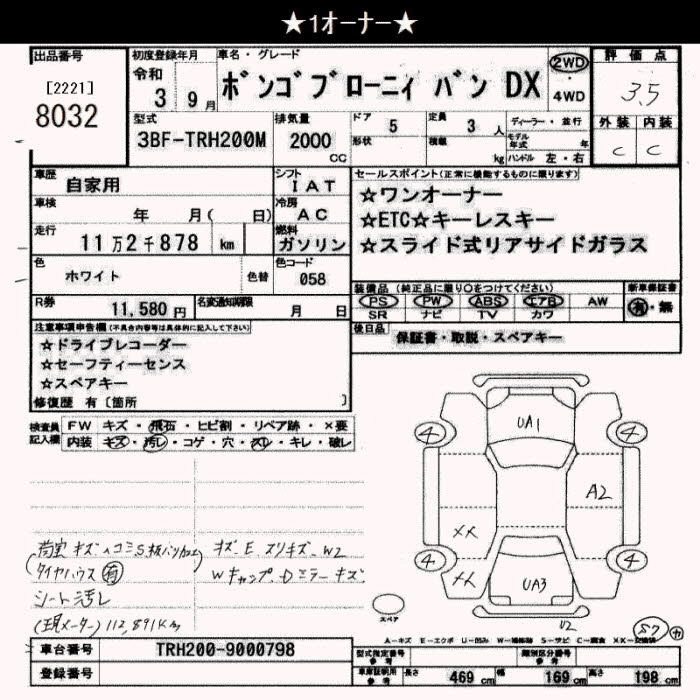 ★1オーナー★
出品番号
[2221]
8032
初度登録年月
令和
3 9月
車名・グレード
ボンゴブローニィ バン DX
2WD
・
4WD
評価点
3.5
外装 内装
C C
型式
3BF-TRH200M
排気量
2000
CC
ドア
5
形状
定員
3 人
積載
kg
ディーラー・並行
モデル
年式 年
ハンドル 左・右
車歴
自家用
シフト
IAT
車検
年 月( 日)
冷房
AC
走行
11万2千878 km
燃料
ガソリン
色
ホワイト
色替
色コード
058
R券
11,580 円
名変通知期限
月 日
セールスポイント(正常に機能するものに限ります)
☆ワンオーナー
☆ETC☆キーレスキー
☆スライド式リアサイドガラス
装備品 (純正品に限り○をつけてください)
新車保証書
PS PW ABS エアB AW
SR ナビ TV カワ
有・無
後日品
保証書・取説・スペアキー
注意事項申告欄(不具合内容等は具体的に記入して下さい)
☆ドライブレコーダー
☆セーフティーセンス
☆スペアキー
修復歴 有〔箇所 〕
検査員
記入欄
FW キズ・飛石・ヒビ割・リペア跡・×要
内装 キズ・汚レ・コゲ・穴・スレ・キレ・破レ
荷室 キズ ヘコミ S
タイヤハウス 有
シート汚レ
(現メーター) 112,891Km
キズ.E スリキズ.W2
Wキャップ.Dミラーキズ
UA1
4 4
A2
XX
4 4
XX
UA3
U2
スペア
57 カ
A-キズ E-エクボ U-凹み W-補修跡 S-サビ C-腐食 XX-交換済
車台番号
TRH200-9000798
登録番号
型式指定番号
参考
類別区分番号
参考
車庫証明用
参考
長さ 469 cm 幅 169 cm 高さ 198 cm